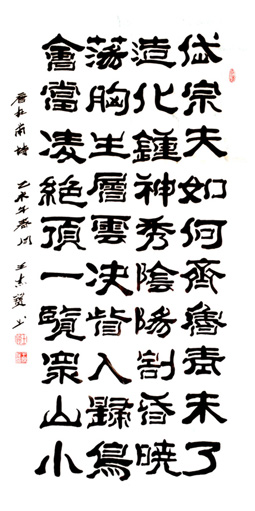 岱宗夫如何齊魯青未了
造化鍾神秀陰陽割昏曉
蕩胸生層雲决眥入歸鳥
會當凌絶頂一覽衆山小
唐杜甫詩 乙未年春月 王志